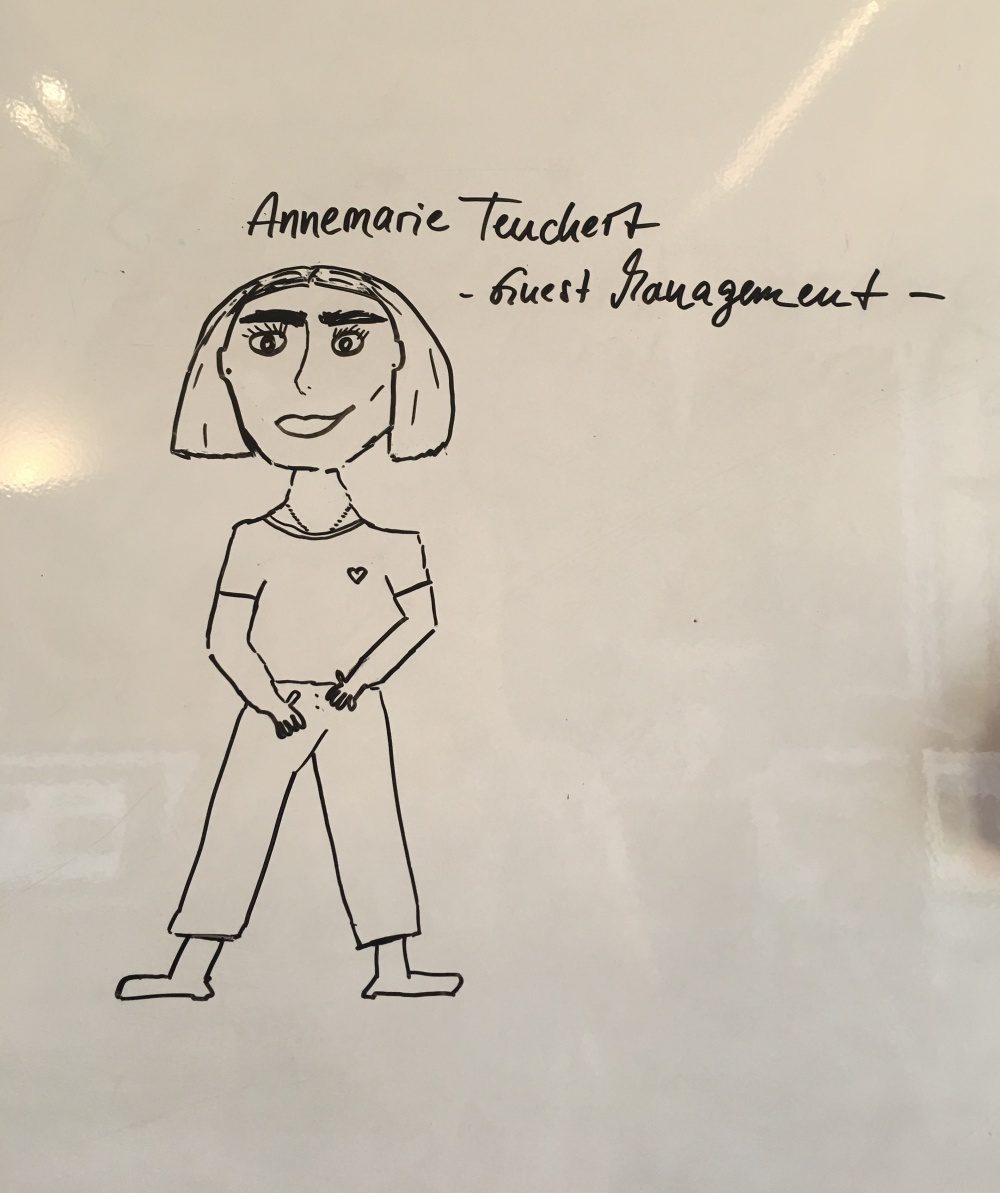 Annemarie Teuchert
- Guest Management -